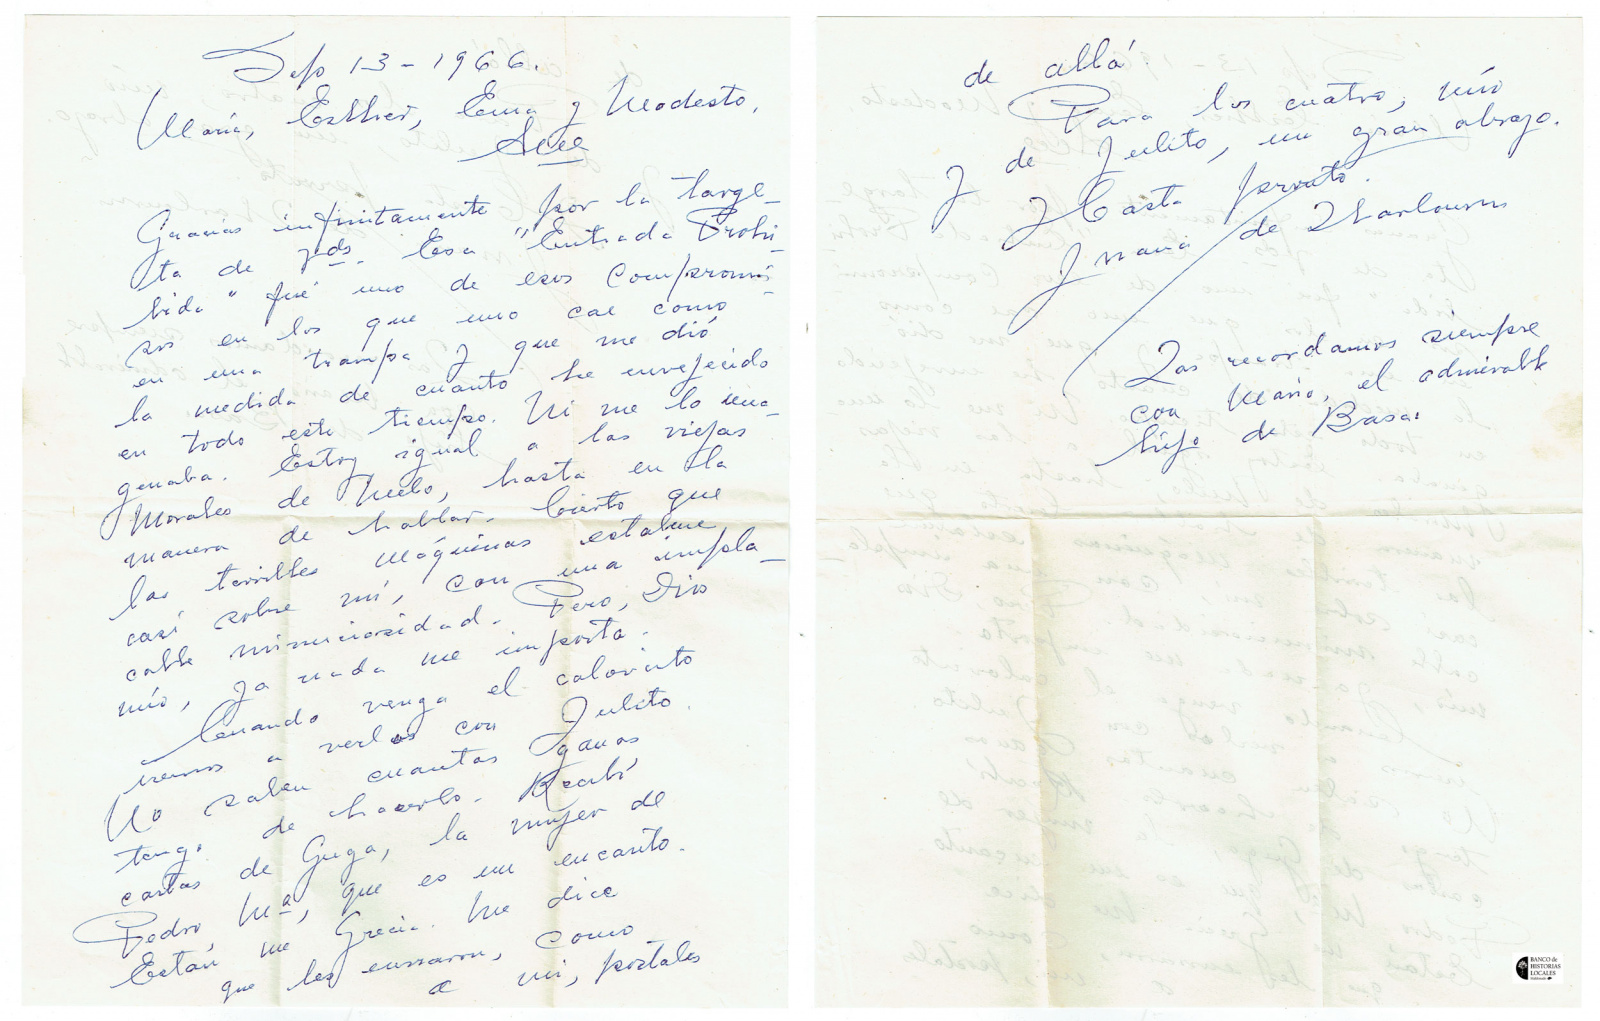 Sep 13-1966.
María, Esther, Ema y Modesto.
Gracias infinitamente por la targe-
ta de Uds. Esa "Entrada Prohi-
bida" fué uno de esos compromi-
sos en los que uno cae como
en una trampa y que me dió
la medida de cuanto he envejecido
en todo este tiempo. Ni me lo ima-
ginaba. Estoy igual a las viejas
Morales de Melo, hasta en la
manera de hablar. Cierto que
las terribles máquinas estaban
casi sobre mí, con una impla-
cable minuciosidad. Pero, Dios
mío, ya nada me importa.
Cuando venga el calorcito
iremos a verlos con Julito.
No saben cuantas ganas
tengo de hacerlo. Recibí
cartas de Guga, la mujer de
Pedro, Ma, que es un encanto.
Están en Grecia. Me dice
que les enviaron, como
a mí, postales
de allá.
Para los cuatro, mío
y de Julito, un gran abrazo.
Hasta prontito.
Juana de Ibarbourou
Las recordamos siempre
con Mario, el admirable
hijo de Basa.
BANCO de
HISTORIAS
LOCALES